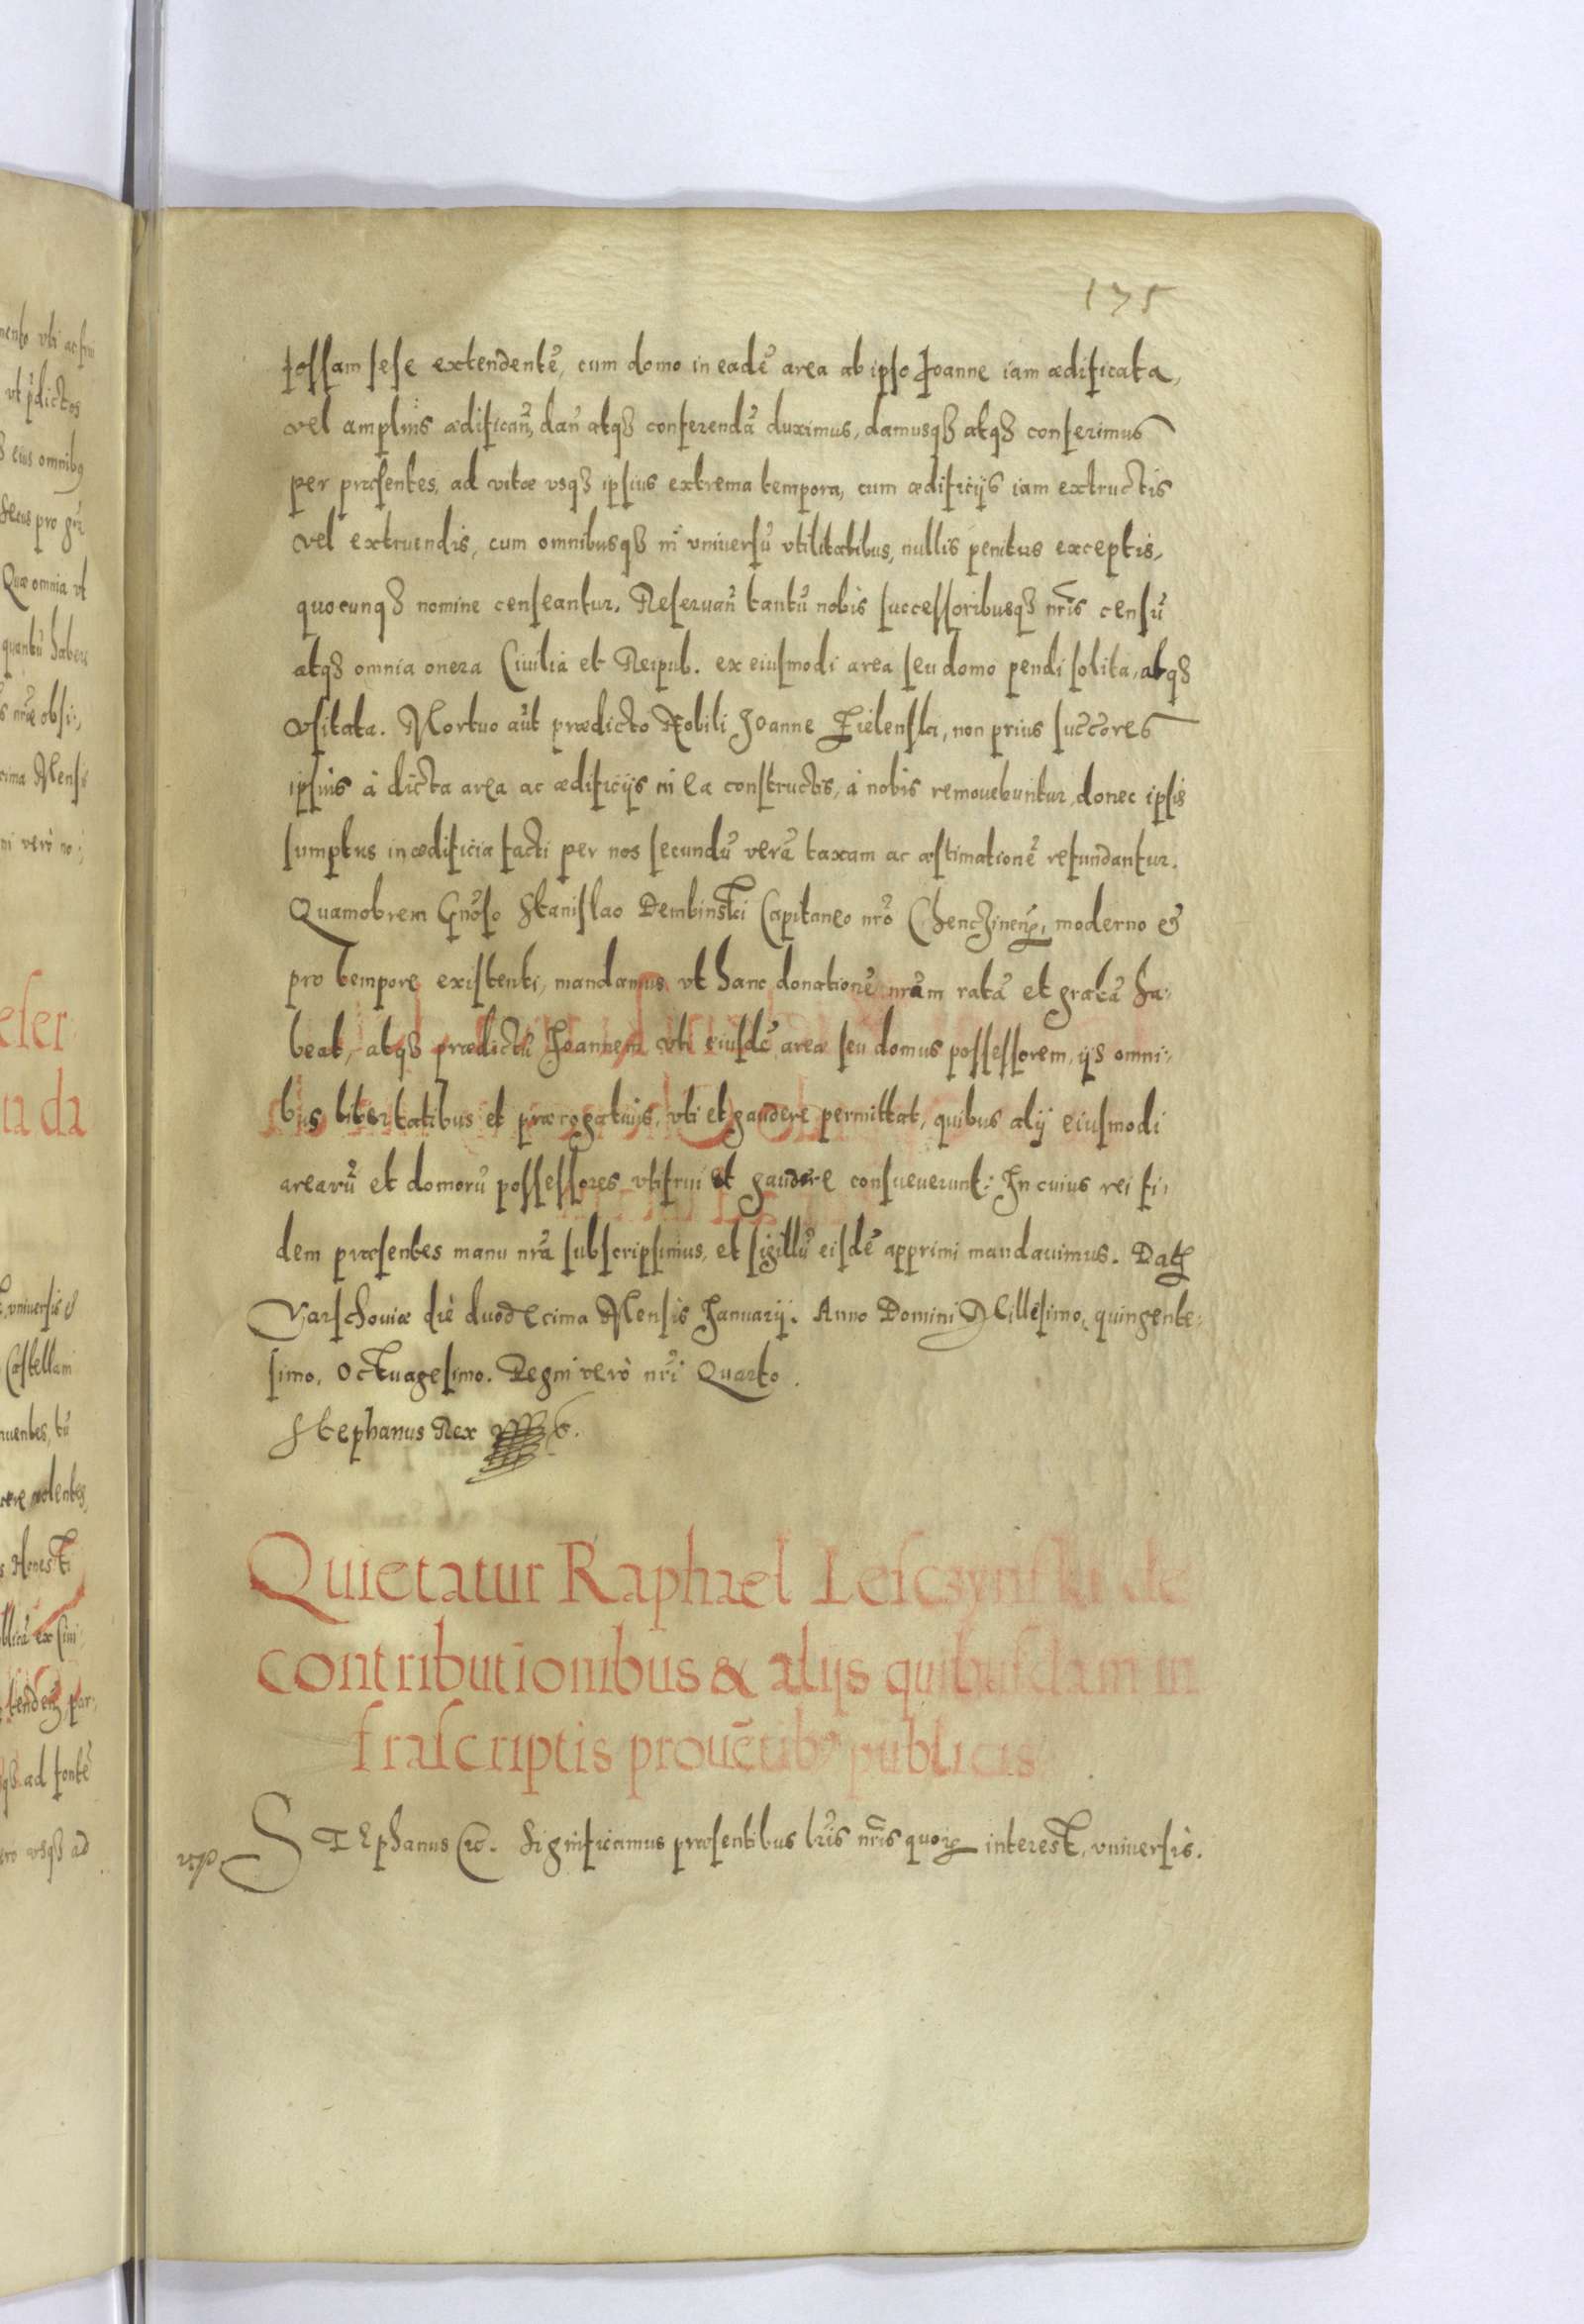 175
fossam sese extendentē, cum domo in eadē area ab ipso Joanne iam ædificata,
vel amplius ædifican̄, dan̄ atq₃ conferendā duximus, damusq₃ atq₃ conferimus
per præsentes, ad vitæ vsq₃ ipsius extrema tempora, cum ædificijs iam extructis
vel extruendis, cum omnibusq₃ in vniversū vtilitatibus, nullis penitus exceptis,
quocunq₃ nomine censeantur. Reseruan̄ tantū nobis successoribusq₃ nr̄is censū
atq₃ omnia onera Ciuilia et Reipub. ex eiusmodi area seu domo pendi solita, atq₃
vsitata. Mortuo aūt prædicto Nobili Joanne Zielensky, non prius succōres
ipsius à dicta area ac ædificijs in ea constructis, à nobis remouebuntur, donec ipsis
sumptus in ædificia facti per nos secundū verā taxam ac æstimationē refundantur.
Quamobrem Gn̄oso Stanislao Dembinski Capitaneo nr̄o Chenczinen̄, moderno &
pro tempore existenti, mandamus vt hanc donationē nr̄am ratā et gratā ha:
beat, atq₃ prædictū Joannem vti eiusdē areæ seu domus possessorem, ijs omni:
bus libertatibus et prærogatiuis, vti et gaudere permittat, quibus alij eiusmodi
arearū et domorū possessores vtifrui et gaudere consueuerunt: In cuius rei fi:
dem præsentes manu nr̄a subscripsimus, et sigillū eisdē apprimi mandauimus. Dat
Varschouiæ diè duodecima Mensis Januarij. Anno Domini Millesimo, quingente:
simo, Octuagesimo. Regni verò nr̄i Quarto.
Stephanus Rex
Quietatur Raphael Lesczynski de
contributionibus & alijs quibusdam in
frascriptis prouētib9 publicis
STEphanus &c. Significamus præsentibus lr̄is nr̄is quoꝝ interest, vniuersis.